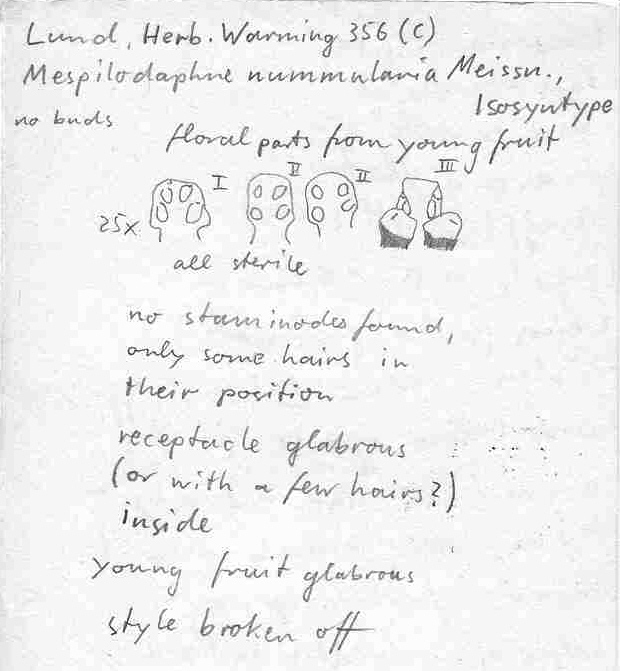 Lund, Herb. Warming 356 (C)
Mespilodaphne nummularia Meissn.,
Isosyntype
no buds
floral parts from young fruit
I II II III
25x
all sterile
no staminodes found,
only some hairs in
their position
receptacle glabrous
(or with a few hairs?)
inside
young fruit glabrous
style broken off